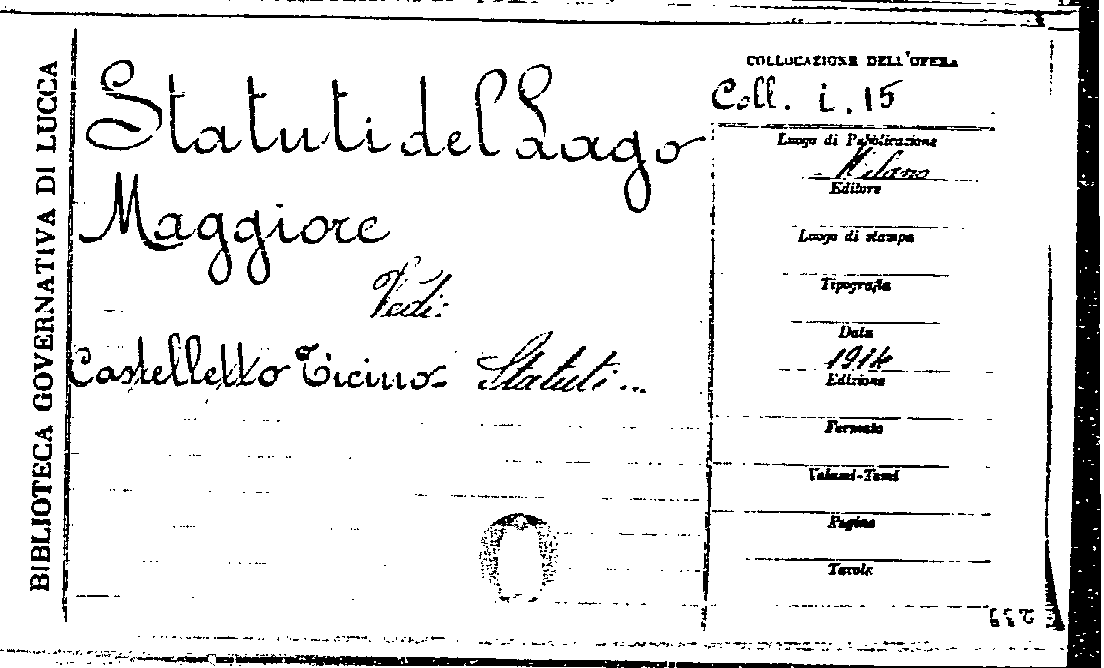 BIBLIOTECA GOVERNATIVA DI LUCCA
Statuti del Lago
Maggiore
Vedi:
Castelletto Ticino - Statuti...
COLLOCAZIONE DELL'OPERA
Coll. i. 15
Luogo di Pubblicazione
Milano
Editore
Luogo di stampa
Tipografia
Data
1914
Edizione
Formato
Volumi-Tomi
Pagine
Tavole